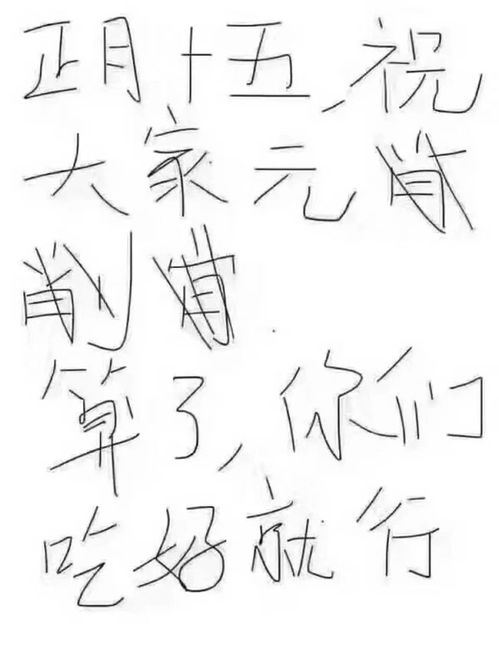 正月十五,祝
大家元肖
削肖
算了,你们
吃好就行